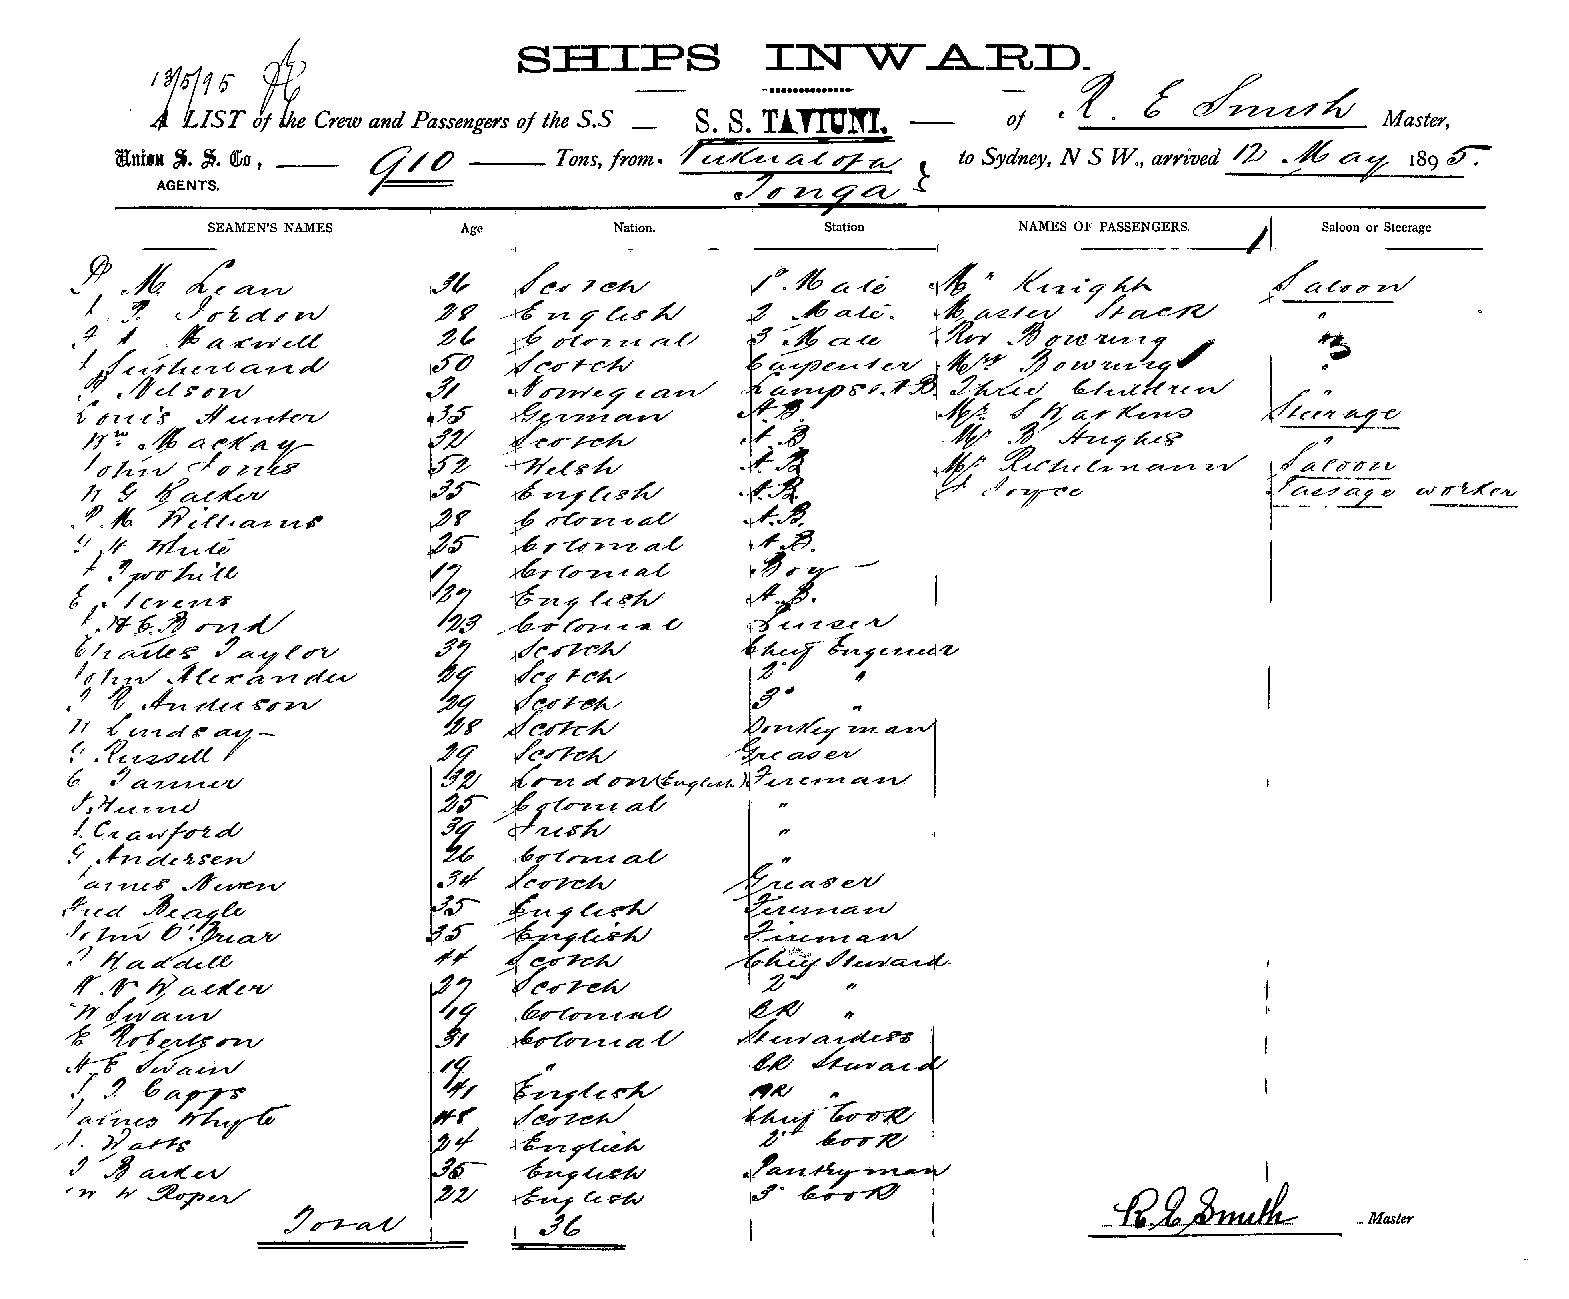 SHIPS INWARD.
13/5/95
A LIST of the Crew and Passengers of the S.S — S. S. TAVIUNI. — of R. E Smith Master,
Union S. S. Co, — 910 — Tons, from Nukualofa to Sydney, N S W., arrived 12 May 1895.
AGENTS. Tonga
SEAMEN'S NAMES Age Nation. Station NAMES OF PASSENGERS. Saloon or Steerage
D McLean 36 Scotch 1st Mate Mr Knight Saloon
Jordon 28 English 2 Mate. Master Stack "
Maxwell 26 Colonial 3 Mate Rev Bowring "
Sutherland 50 Scotch Carpenter Mrs Bowring "
Nelson 31 Norwegian Lamps & A.B. Three Children "
Louis Hunter 35 German A.B. Mr S Watkins Steerage
Wm Mackay 32 Scotch A.B Mr B Hughes "
John Jones 52 Welsh A.B Mr Richelmann Saloon
W G Walker 35 English A.B. J Joyce Passage worker
P. M. Williams 28 Colonial A.B.
G. H White 25 Colonial A.B.
J Twohill 17 Colonial Boy —
E. Stevens 27 English A.B.
H. C. Bond 23 Colonial Purser
Charles Taylor 37 Scotch Chief Engineer
John Alexander 29 Scotch 2d "
J R Anderson 29 Scotch 3d "
W Lindsay 28 Scotch Donkeyman
G Russell 29 Scotch Greaser
C Tanner 32 London (English) Fireman
Hume 25 Colonial "
J. Crawford 39 Irish "
G Andersen 26 Colonial "
James Niven 34 Scotch Greaser
Fred Beagle 35 English Fireman
John O'Friar 35 English Fireman
Waddell 44 Scotch Chief Steward
W. N Walker 27 Scotch 2d "
W Swain 19 Colonial BR "
E Robertson 31 Colonial Stewardess
H E Swain 19 " BR Steward
Capps 41 English "
James Whyte 48 Scotch Chief Cook
Watts 24 English 2d Cook
J Barker 35 English Pantryman
W W Roper 22 English 3d Cook
Total 36
R E Smith Master